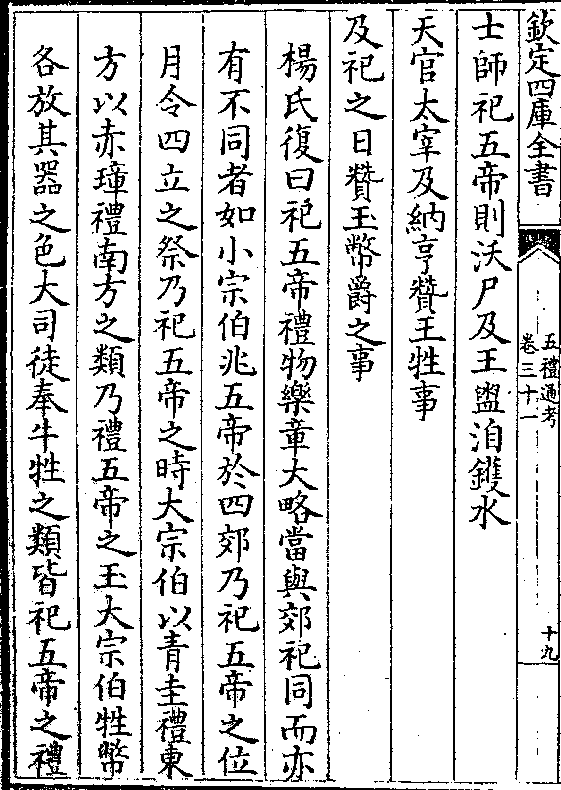 欽定四庫全書
五禮通考
卷三十一
十九
士師祀五帝則沃尸及王盥洎鑊水
天官太宰及納亨贊王牲事
及祀之日贊玉幣爵之事
楊氏復曰祀五帝禮物樂章大略當與郊祀同而亦
有不同者如小宗伯兆五帝於四郊乃祀五帝之位
月令四立之祭乃祀五帝之時大宗伯以青圭禮東
方以赤璋禮南方之類乃禮五帝之玉大宗伯牲幣
各放其器之色大司徒奉牛牲之類皆祀五帝之禮